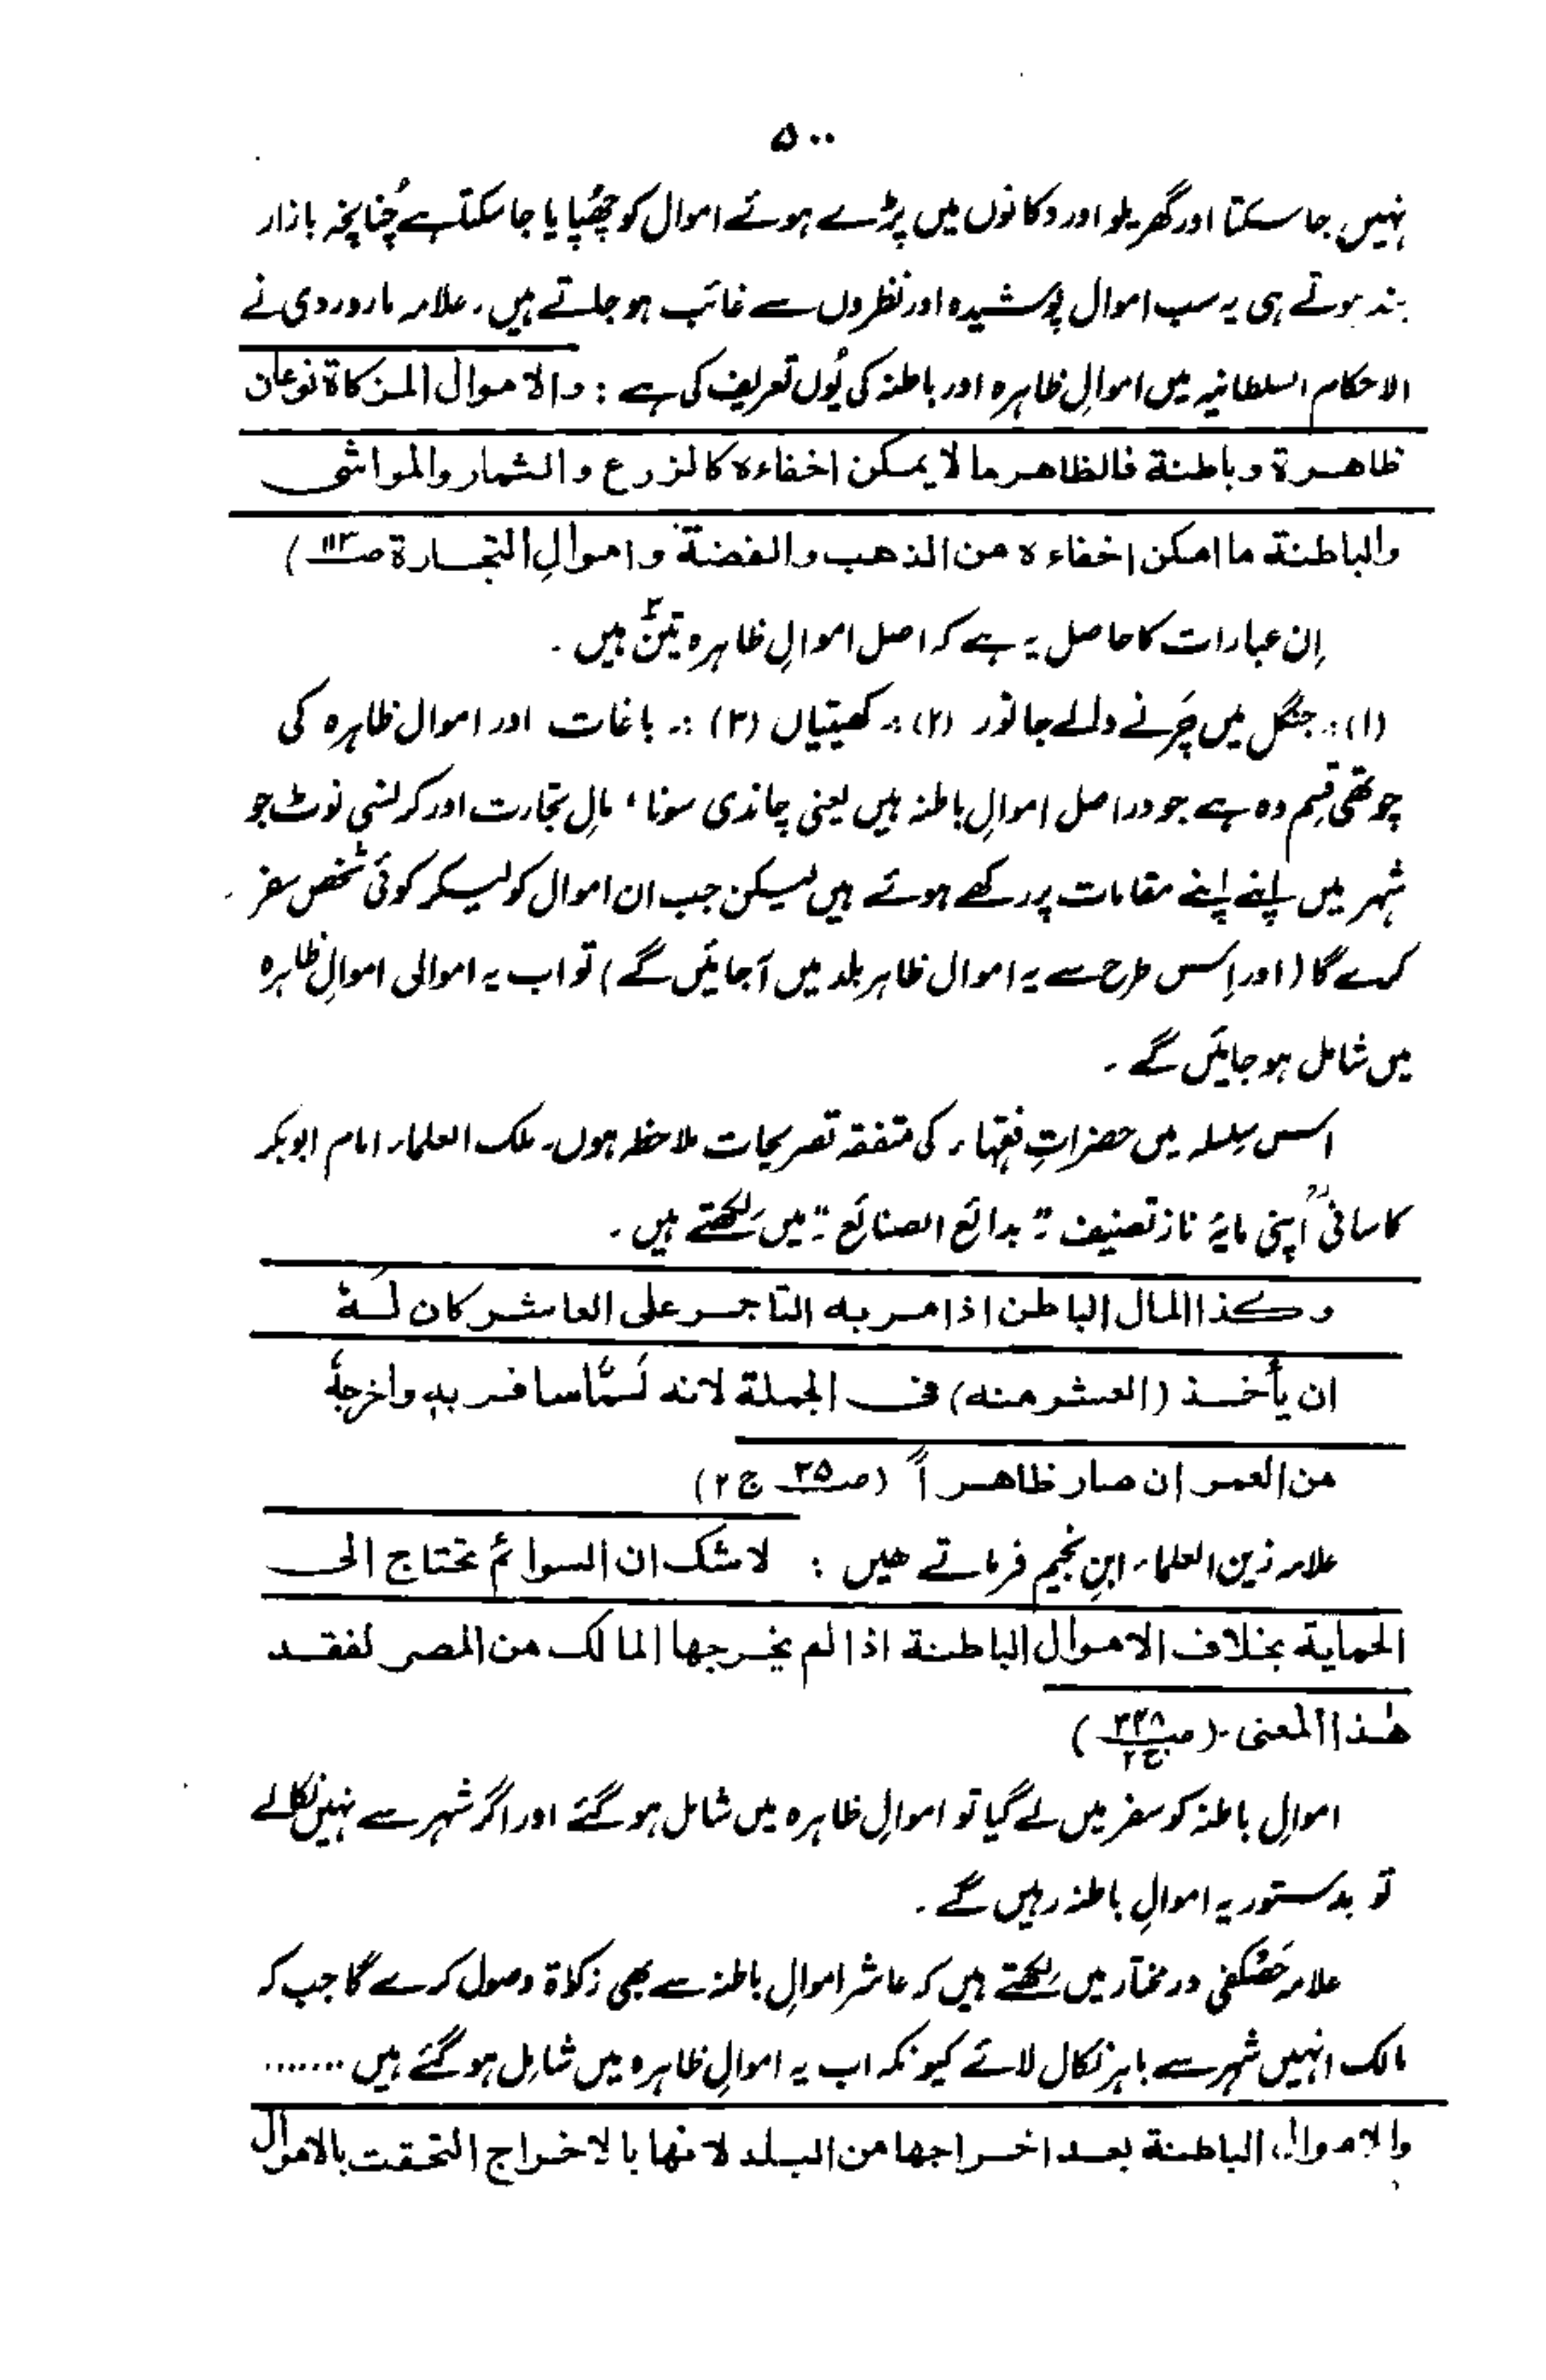 ۵۰۰
نہیں جا سکتا اور گھریلو اور دکانوں میں پڑے ہوئے اموال کو چھُپایا جا سکتا ہے چُنانچہ بازار
بند ہوتے ہی یہ سب اموال پوشیدہ اور نظروں سے غائب ہو جاتے ہیں۔ علامہ ماوردی نے
الاحکام السلطانیہ میں اموالِ ظاہرہ اور باطنہ کی یُوں تعریف کی ہے : والاموال المزکاة نوعان
ظاهرة وباطنة فالظاهر ما لا یمکن اخفاءه کالزرع والثمار والمواشی
والباطنة ما امکن اخفاءه من الذهب والفضة واموالِ التجارة صـ۱۱۳)
اِن عبارات کا حاصل یہ ہے کہ اصل اموالِ ظاہرہ تینؔ ہیں ۔
(۱)؛۔ جنگل میں چَرنے والے جانور (۲)؛۔ کھیتیاں (۳) ؛۔ باغات اور اموال ظاہرہ کی
چوتھی قِسم وہ ہے جو دراصل اموالِ باطنہ ہیں یعنی چاندی سونا، مالِ تجارت اور کرنسی نوٹ جو
شہر میں اپنے اپنے مقامات پر رکھے ہوئے ہیں لیکن جب ان اموال کو لیکر کوئی شخص سفر
کرے گا (اور اِس طرح سے یہ اموال ظاہر بلد میں آ جائیں گے) تو اب یہ اموالی اموالِ ظاہرہ
میں شامل ہو جائیں گے ۔
اس سلسلہ میں حضراتِ فقہاء کی متفقہ تصریحات ملاحظہ ہوں۔ ملک العلماء امام ابوبکر
کاسانیؒ اپنی مایۂ ناز تصنیف "بدائع الصنائع" میں لکھتے ہیں ۔
وکذا المال الباطن اذا مر به التاجر علی العاشر کان لهٗ
ان یأخذ (العشر منه) فی الجملة لانه لَمَّا سافر بهٖ واخرجهٗ
من العمران صار ظاهراً (صـ۳۵ ج ۲)
علامہ زین العلماء ابنِ نجیم فرماتے ہیں : لا شک ان السوائم تحتاج الی
الحمایة بخلاف الاموال الباطنة اذا لم یخرجها المالک من المصر لفقد
هٰذا المعنی ۔ (صـ۲۴۸ ج۲)
اموالِ باطنہ کو سفر میں لے گیا تو اموالِ ظاہرہ میں شامل ہو گئے اور اگر شہر سے نہیں نکالے
تو بدستور یہ اموالِ باطنہ رہیں گے ۔
علامہ حَصْکفی در مختار میں لکھتے ہیں کہ عاشر اموالِ باطنہ سے بھی زکوٰة وصول کرے گا جب کہ
مالک انہیں شہر سے باہر نکال لائے کیونکہ اب یہ اموالِ ظاہرہ میں شامِل ہو گئے ہیں .......
والاموال الباطنة بعد اخراجها من البلد لانها بالاخراج التحقت بالاموال